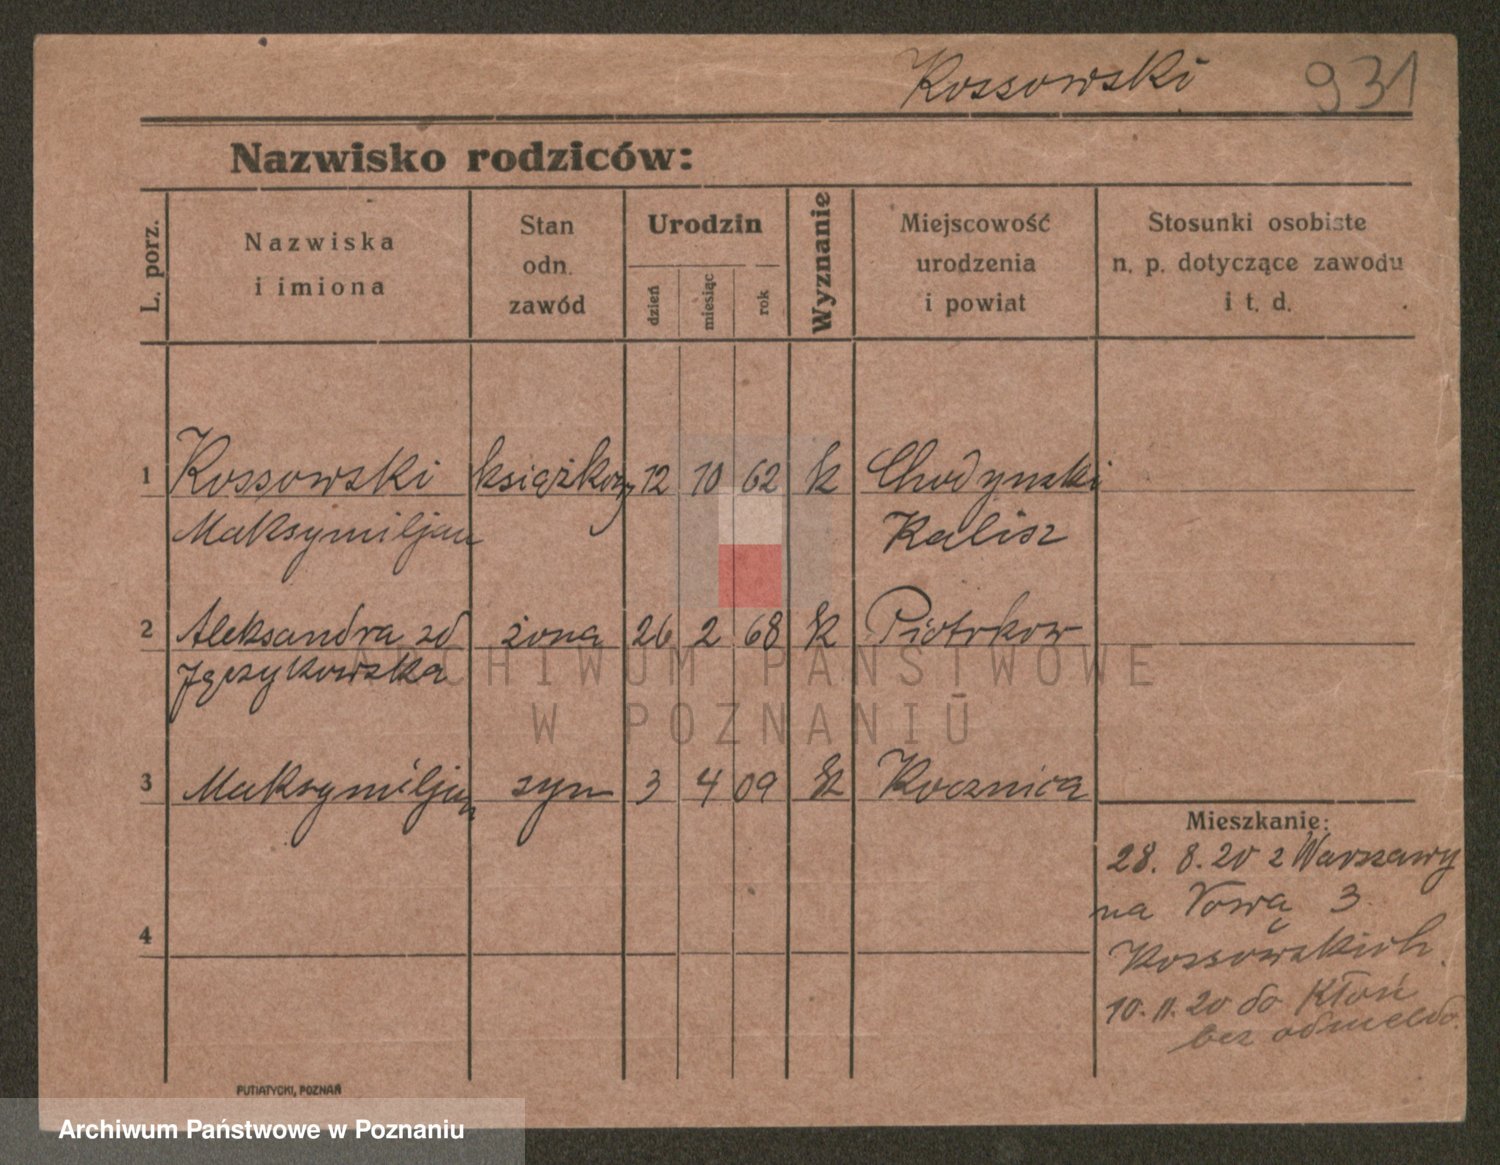 Kossowski 931
Nazwisko rodziców:
L. porz.
Nazwiska
i imiona
Stan
odn.
zawód
Urodzin
dzień
miesiąc
rok
Wyznanie
Miejscowość
urodzenia
i powiat
Stosunki osobiste
n. p. dotyczące zawodu
i t. d.
1 Kossowski 12 10 62 k Chodynski
Maksymiljan Kalisz
2 Aleksandra zd żona 26 2 68 k Piotrkow
Językowska
ARCHIWUM PAŃSTWOWE
W POZNANIU
3 Maksymiljan syn 3 4 09 k Kocznica
Mieszkanie:
28. 8. 20 z Warszawy
na 3
4
Kossowskich.
10. 11. 20 do Kłoń
bez odmeldo.
PUTIATYCKI, POZNAŃ
Archiwum Państwowe w Poznaniu